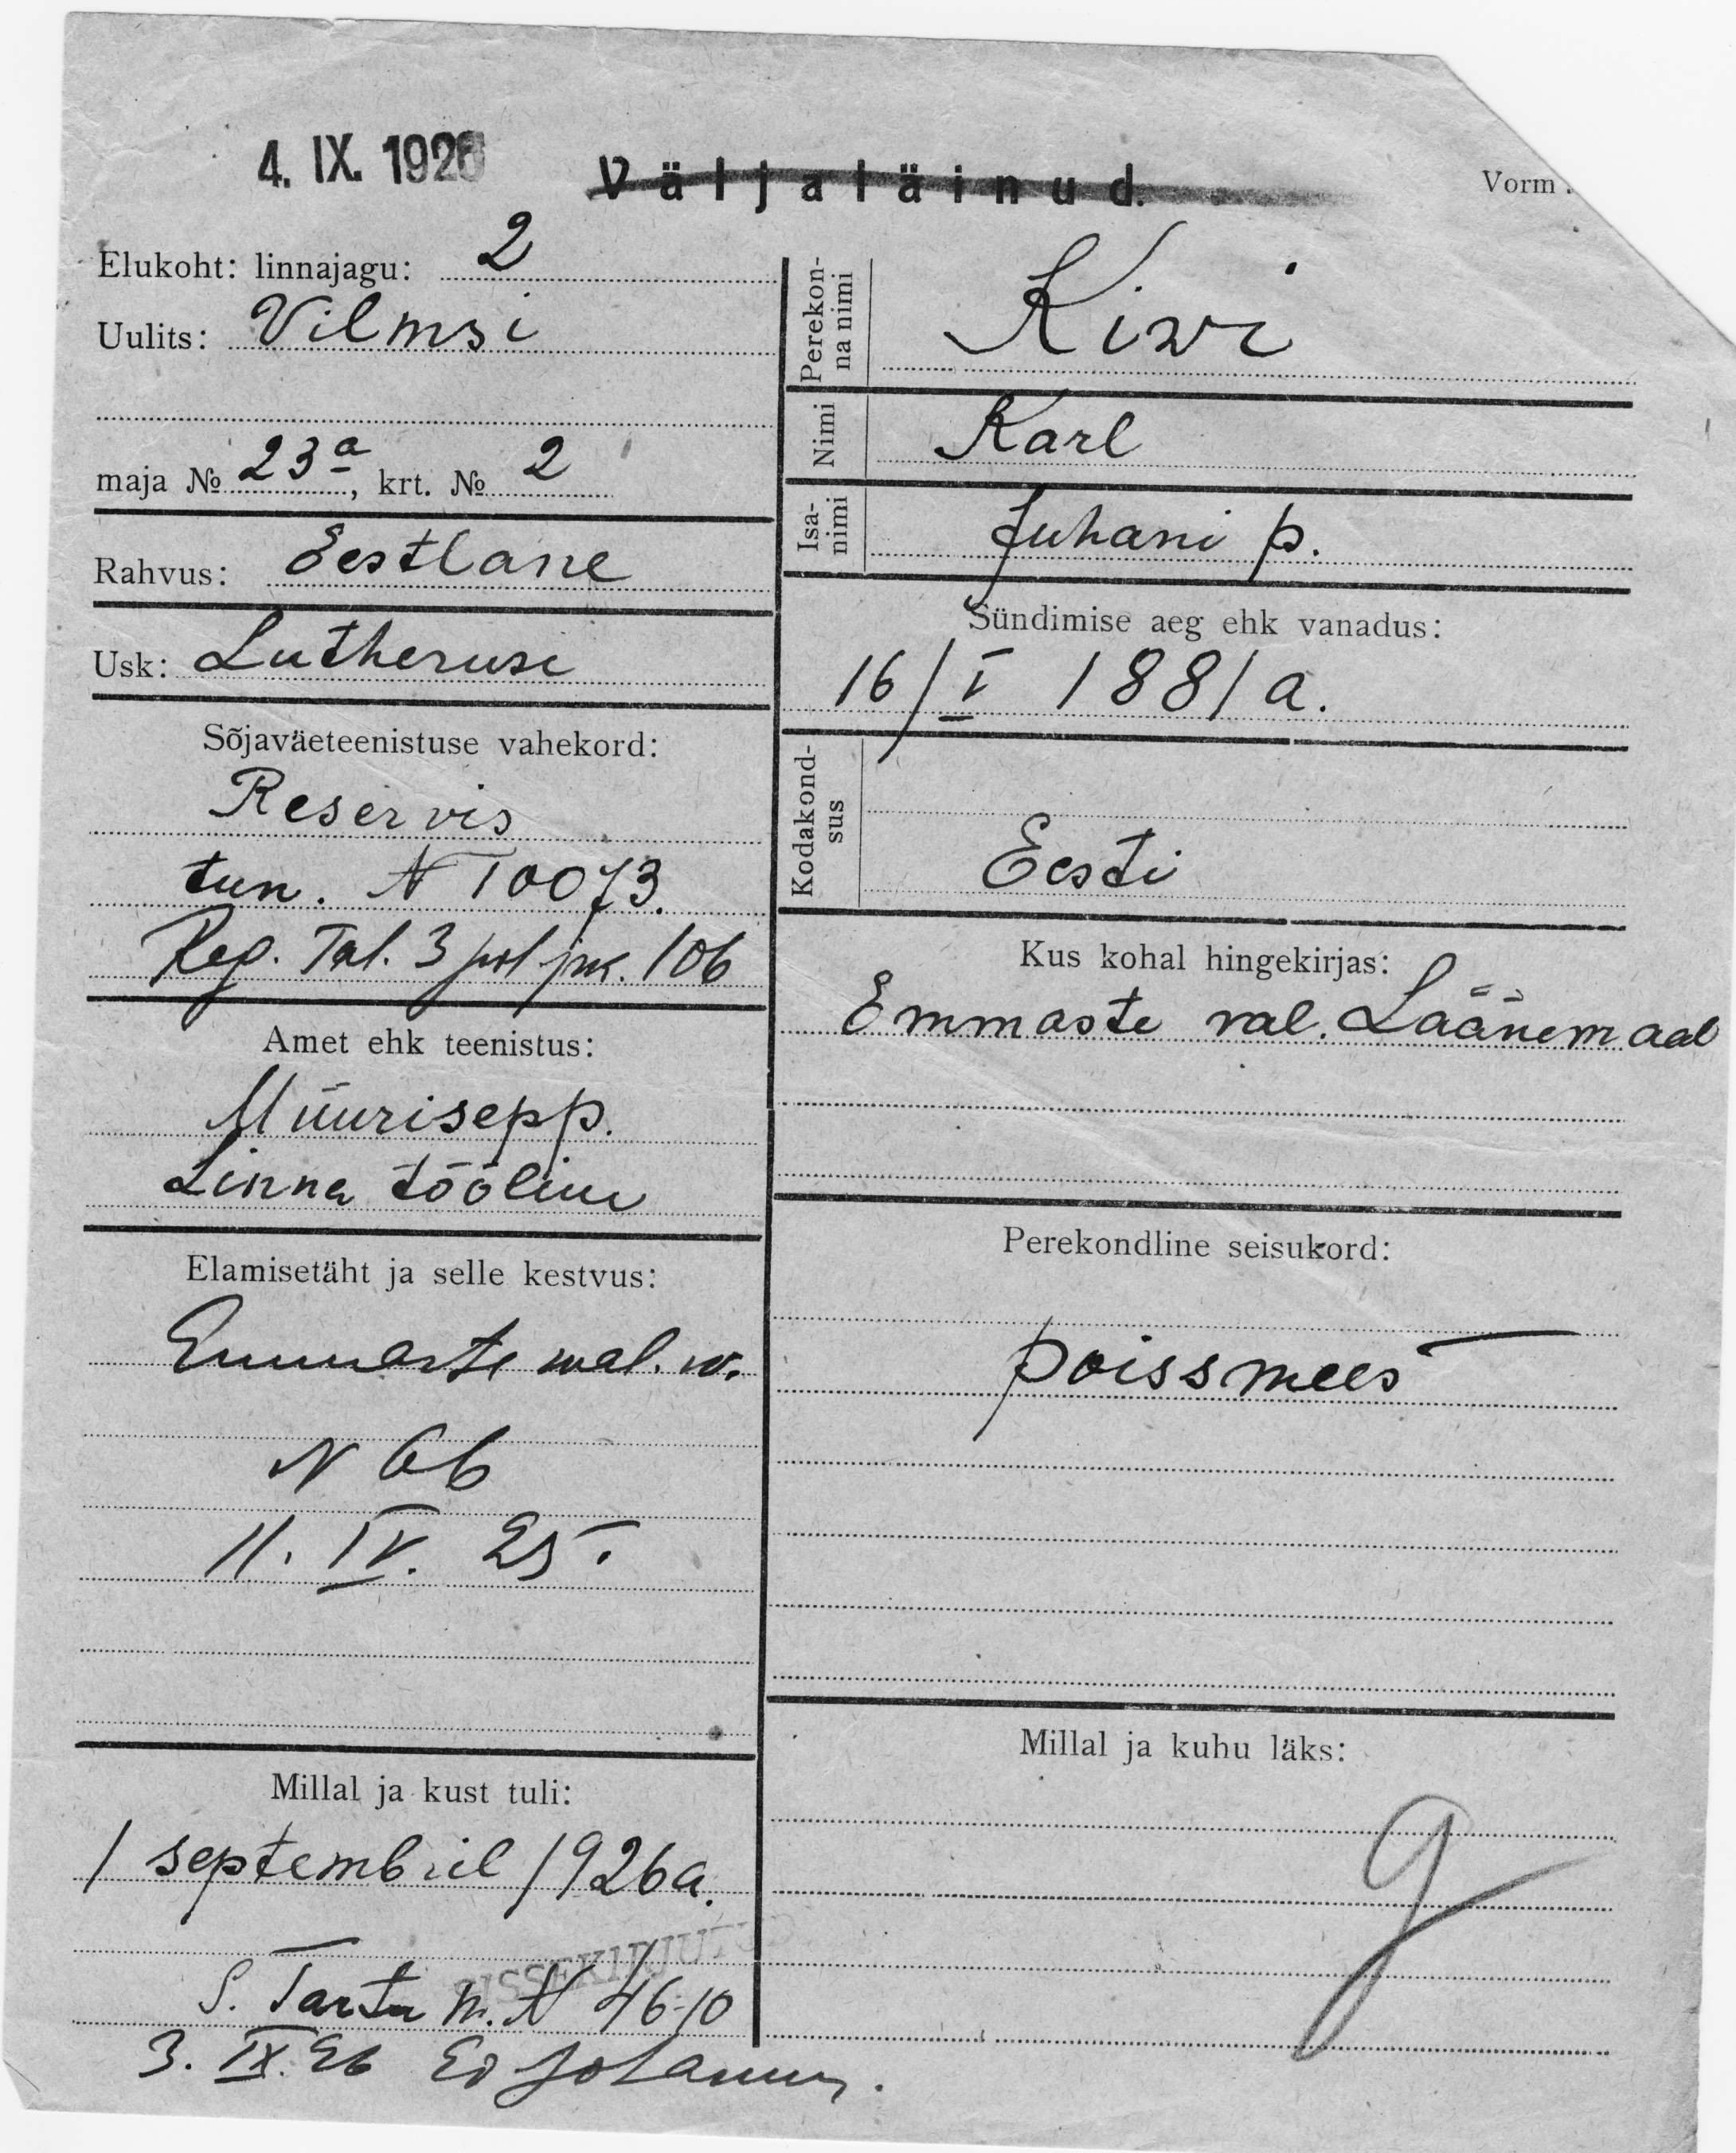 4. IX. 1926
Väljaläinud.
Vorm
Elukoht: linnajagu: 2
Uulits: Vilmsi
maja № 23a, krt. № 2
Rahvus: Eestlane
Usk: Lutheruse
Sõjaväeteenistuse vahekord:
Reservis
tun. N 10073.
Reg. Tal. 3 pol jsk. 106
Amet ehk teenistus:
Müürisepp.
Linna tööline
Elamisetäht ja selle kestvus:
Emmaste wal. w.
N 66
11. IV. 25.
Millal ja kust tuli:
1 septembril 1926 a.
SISSEKIRJUTUD
S. Tartu m. N 46-10
3. IX. 26
Perekonna nimi
Kiwi
Nimi
Karl
Isanimi
Juhani p.
Sündimise aeg ehk vanadus:
16/V 1881 a.
Kodakondsus
Eesti
Kus kohal hingekirjas:
Emmaste val. Läänemaal
Perekondline seisukord:
poissmees
Millal ja kuhu läks: